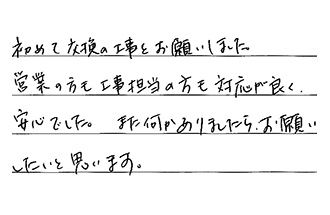 初めて交換の工事をお願いしました。
営業の方も工事担当の方も対応が良く、
安心でした。また何かありましたら、お願い
したいと思います。